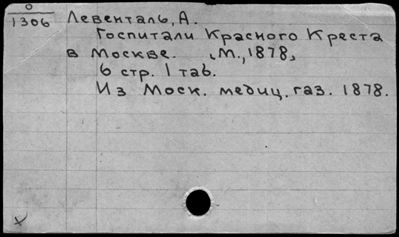 О
1306 Левенталь, А.
Госпитали Красного Креста
в Москве. М., 1878,
6 стр. 1 таб.
Из Моск. медиц. газ. 1878.